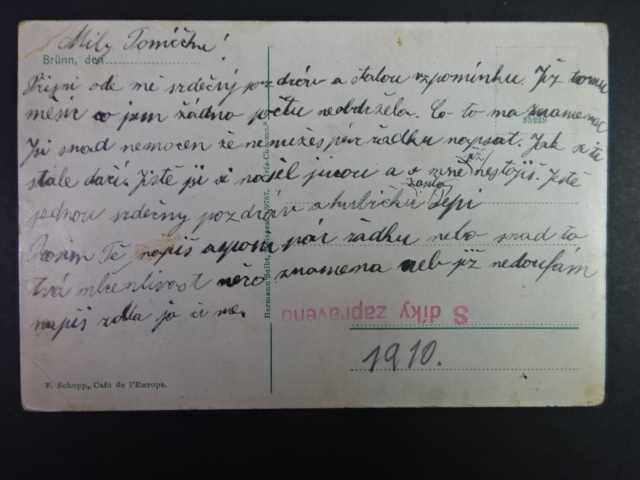 Milý Toníčku!
Brünn, den
Přijmi ode mě srdečný pozdrav a stalou vzpomínku. Již tomu
měsíc co jsem žádno počtu neobdržela. Co to ma znamenat
Jsi snad nemocen že nemužeš pár řádku napsat. Jak se ti
stále daří. Jistě jsi si našel jinou a o mne již nestojíš. Ještě
jednou srdečny pozdrav a hubičku žasla Pepi
Prosim Tě napiš aspon pár řádku nebo snad to
tvá mlčenlivost něco znamena neb již nedoufám
napiš zdla jo či ne.
35229
Hermann Seibt, Meissen
S díky zapraveno
1910.
F. Schopp, Café de l'Europe.